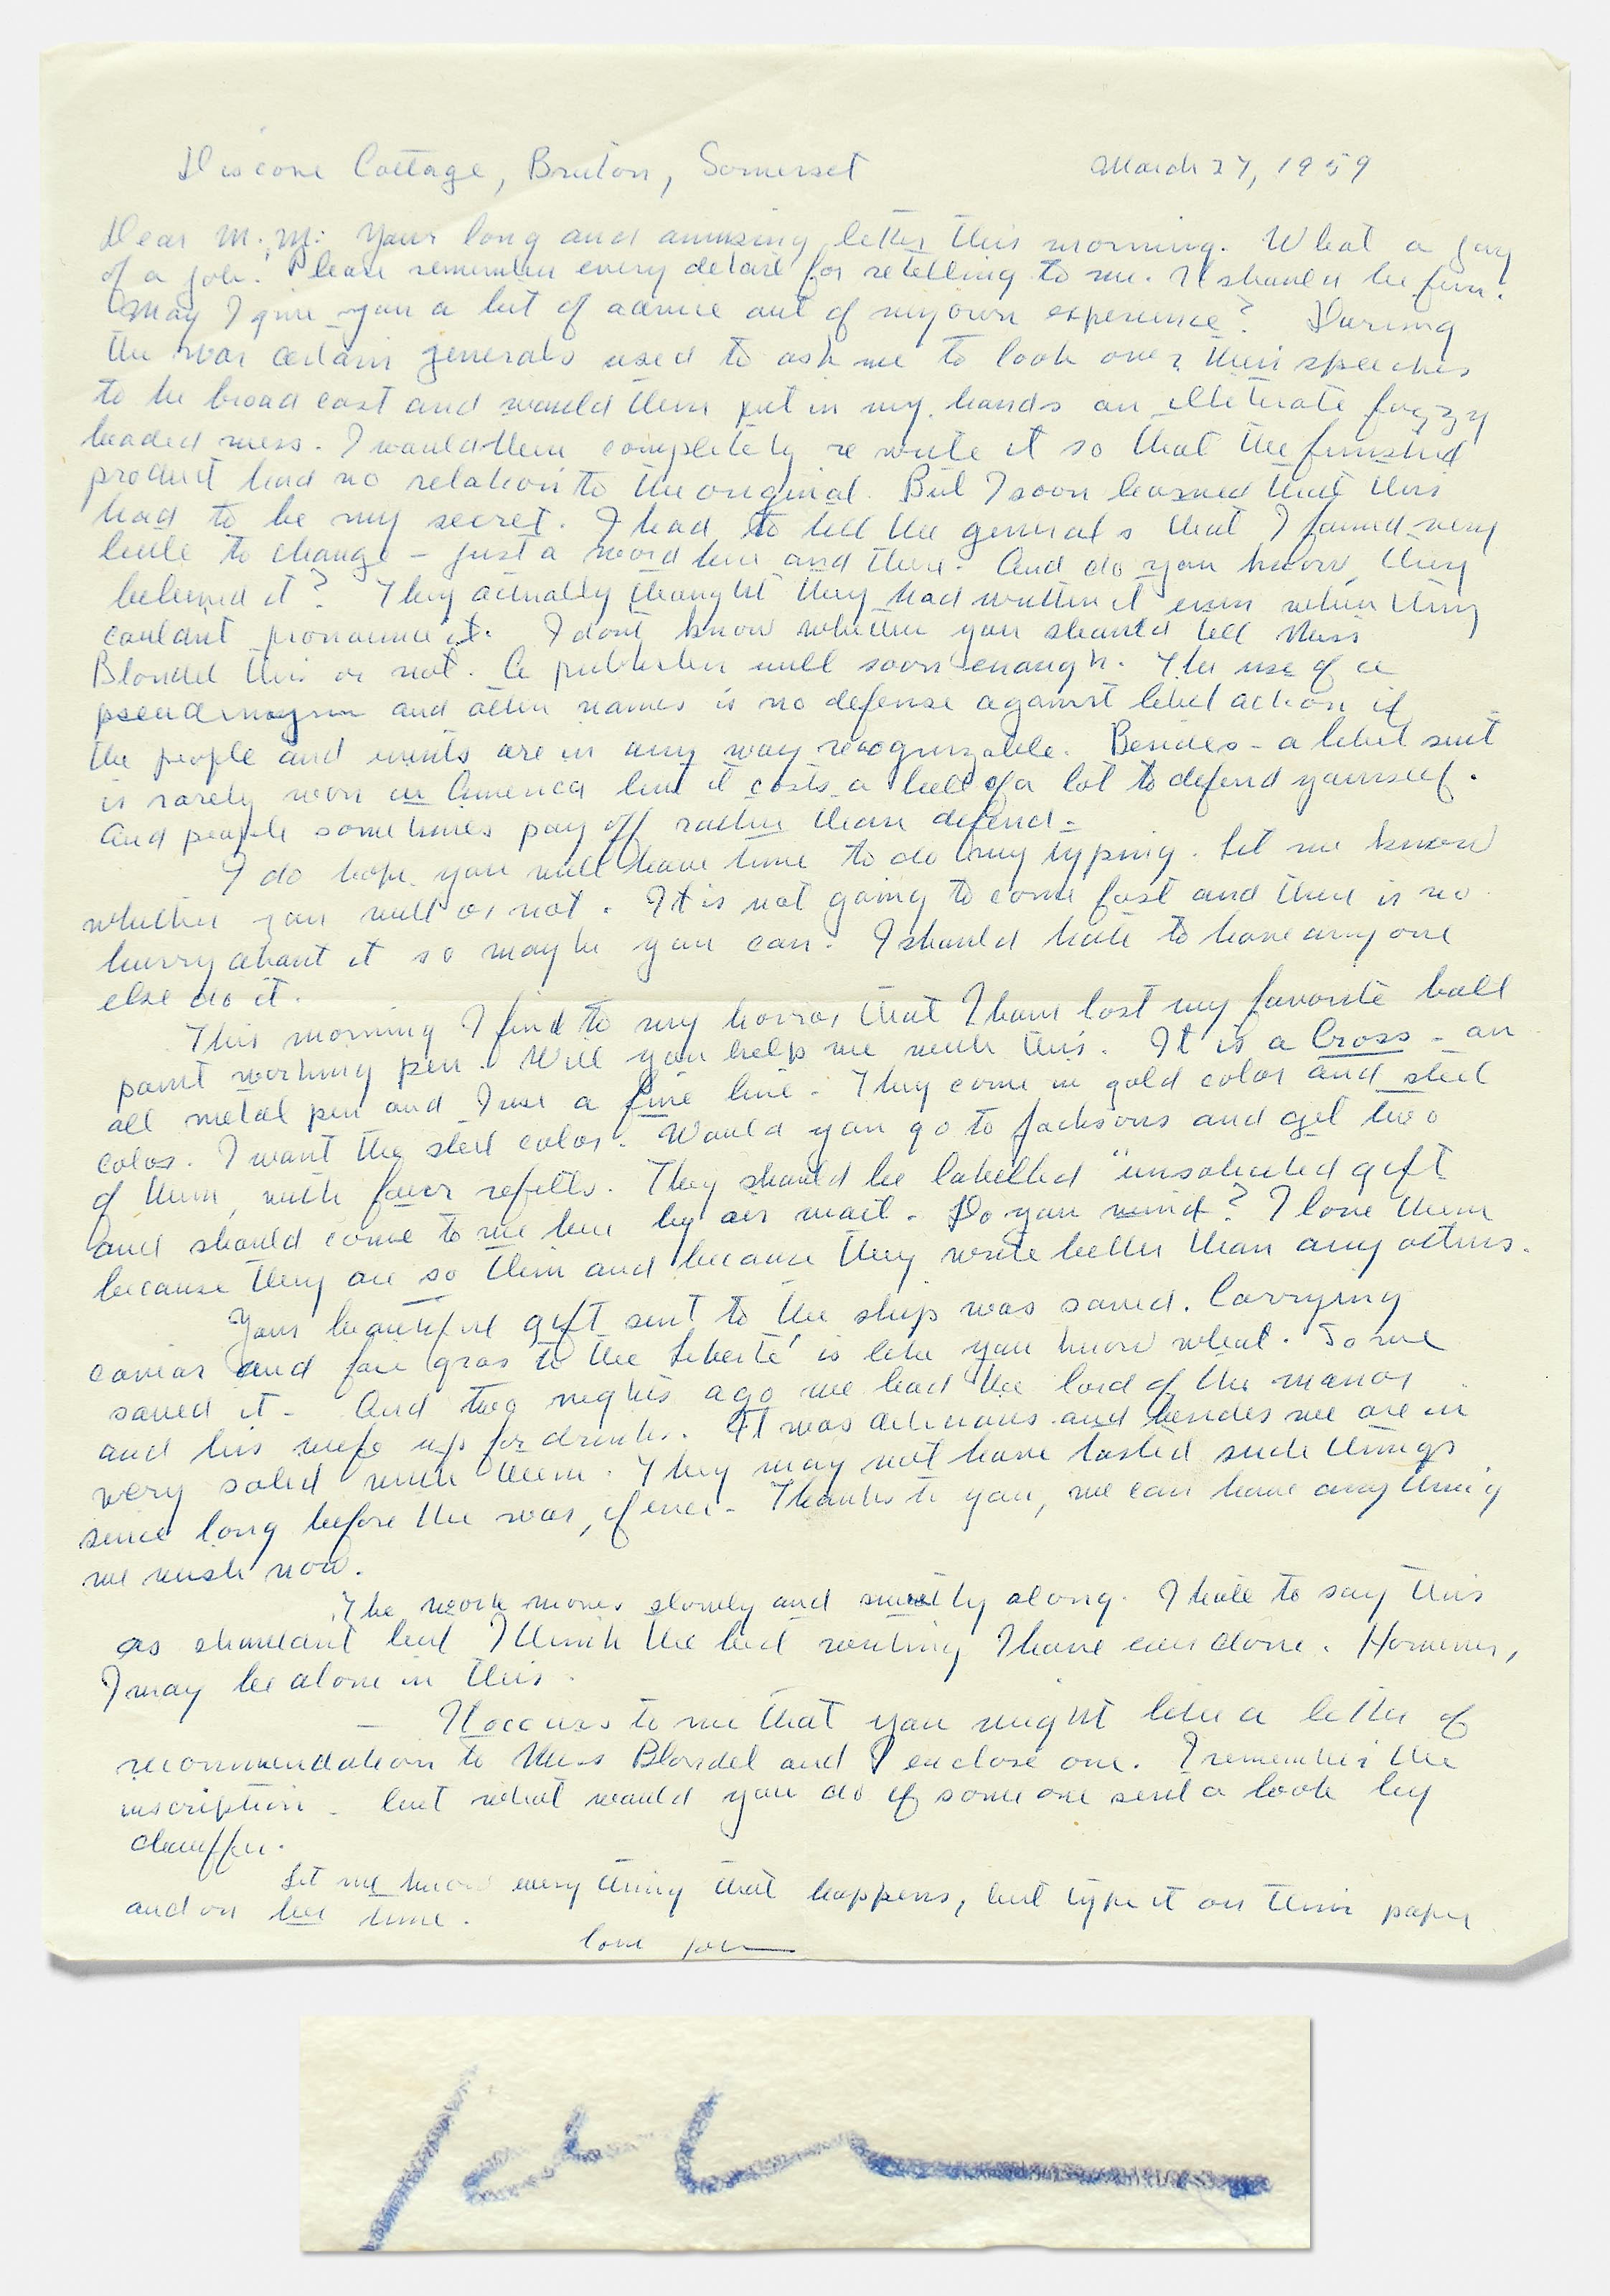 Discove Cottage, Bruton, Somerset March 27, 1959
Dear M. M: Your long and amusing letter this morning. What a joy
of a job. Please remember every detail for retelling to me. It should be fun.
May I give you a bit of advice out of my own experience? During
the war certain generals used to ask me to look over their speeches
to be broad cast and would then put in my hands an illiterate fuzzy
headed mess. I would then completely re write it so that the finished
product had no relation to the original. But I soon learned that this
had to be my secret. I had to tell the generals that I found very
little to change – just a word here and there. And do you know, they
believed it? They actually thought they had written it even when they
couldnt pronounce it. I dont know whether you should tell Miss
Blondel this or not. A publisher will soon enough. The use of a
and other names is no defense against libel action if
the people and events are in any way recognizable. Besides – a libel suit
is rarely won in America but it costs a hell of a lot to defend yourself.
And people sometimes pay off rather than defend.
I do hope you will have time to do my typing. Let me know
whether you will or not. It is not going to come fast and there is no
hurry about it so maybe you can. I should hate to have any one
else do it.
This morning I find to my horror that I have lost my favorite ball
point working pen. Will you help me with this. It is a Cross – an
all metal pen and I use a fine line. They come in gold color and steel
color. I want the steel color. Would you go to Jacksons and get two
of them, with four refills. They should be labelled "unsolicited gift
and should come to me here by air mail. Do you mind? I love them
because they are so thin and because they write better than any others.
Your beautiful gift sent to the ship was saved. Carrying
caviar and foie gras to the Liberté is like you know what. So we
saved it. And two nights ago we had the lord of the manor
and his wife up for drinks. It was delicious and besides we are in
very solid with them. They may not have tasted such things
since long before the war, if ever. Thanks to you, we can have anything
we wish now.
The work moves slowly and sweetly along. I hate to say this
as shouldnt but I think the best writing I have ever done. However,
I may be alone in this.
– It occurs to me that you might like a letter of
recommendation to Miss Blondel and I enclose one. I remember the
inscription – but what would you do if some one sent a book by
chauffer.
Let me know every thing that happens, but type it on thin paper
and on her time.
love John
John